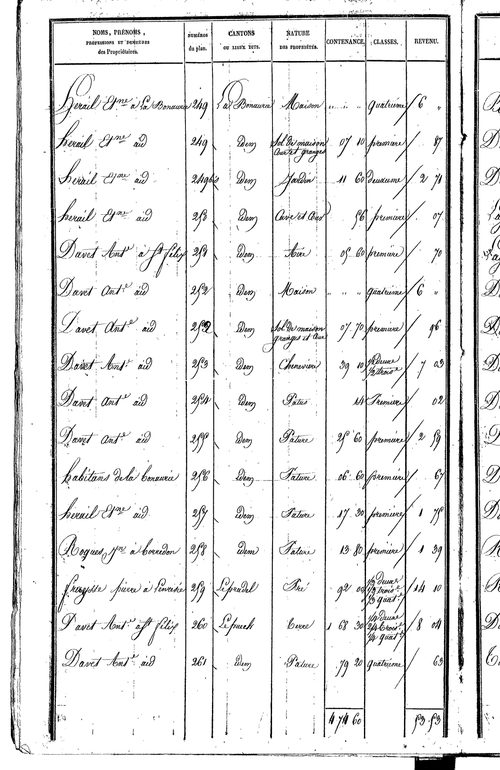 NOMS, PRÉNOMS, PROFESSIONS ET DEMEURES des Propriétaires. NUMÉROS du plan. CANTONS OU LIEUX DITS. NATURE DES PROPRIÉTÉS. CONTENANCE. CLASSES. REVENU.
herail Etne à La Bonaurie 249 La Bonaurie Maison " " " quatrieme 6 "
herail Etne aid 249 idem Sol de maison Cave et granges 07 10 premiere . 87
herail Etne aid 249 bis idem Jardin 11 60 Deuxieme 2 71
herail Etne aid idem Cave et premiere . 07
Davet Ante à St félix 251 idem Aire 05 60 premiere . 70
Davet Ante aid 252 idem Maison " " " quatrieme 6 "
Davet Ante aid 252 idem Sol de maison granges et 07 70 premiere . 96
Davet Ante aid 253 idem Cheneviere 39 10 1/2 deuxe 1/2 troise 7 03
Davet Ante aid 254 idem Patus 14 Premiere . 02
Davet Ante aid 255 idem Pature 25 60 premiere 2 59
habitans de la Bonaurie 256 idem Pature 06 60 premiere 67
herail Etne aid 257 idem Pature 17 30 premiere 1 75
Rogues à 258 idem Pature 13 80 premiere 1 39
fraysse pierre à 259 Le pradel Pré 92 00 1/3 deuxe 1/3 troise 1/3 quate 14 10
Davet Ante à St félix 260 Le puech Terre 1 68 30 1/4 deuxe 2/4 troise 1/4 quate 8 04
Davet Ante aid 261 idem Pature 79 20 quatrieme 63
4 74 60 53 53